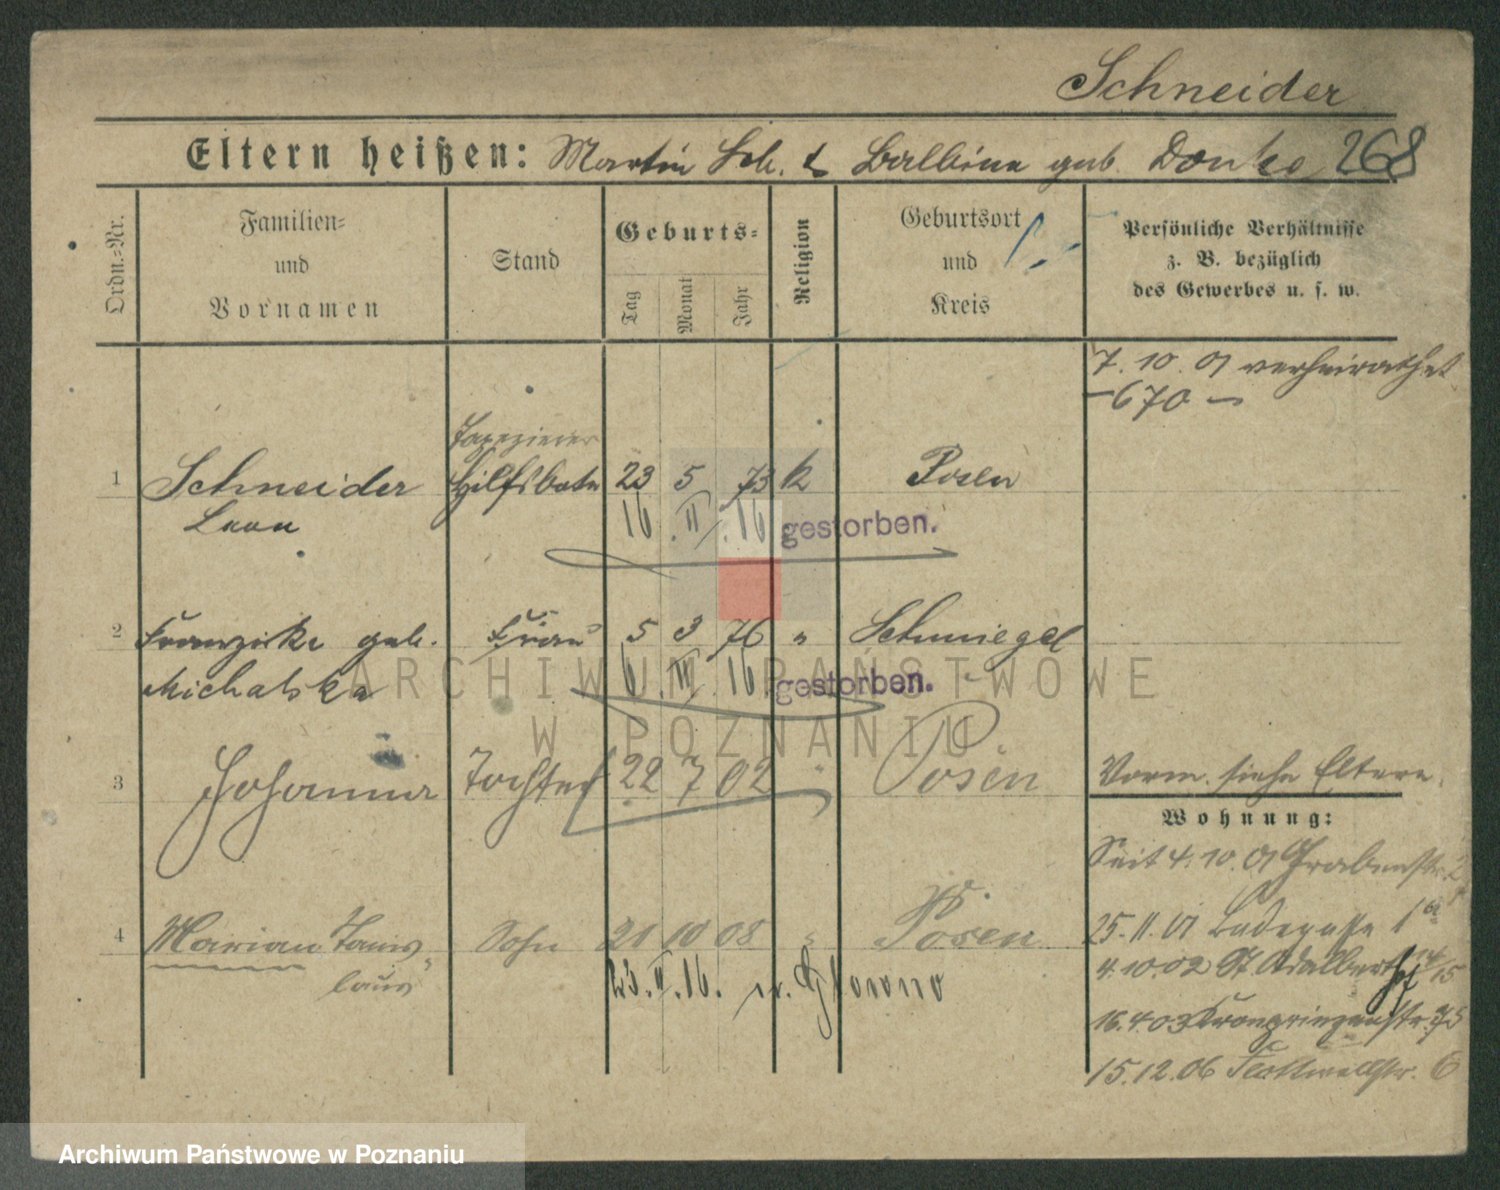 Schneider
Eltern heißen: Martin Sch. & Balbina geb. Donke 268
Ordn.-Nr.
Familien-
und
Vornamen
Stand
Geburts-
Tag Monat Jahr
Religion
Geburtsort
und
Kreis
Persönliche Verhältnisse
z. B. bezüglich
des Gewerbes u. s. w.
7. 10. 01 verheirathet
– 670 –
Tapezierer
1 Schneider Hilfsbote 23 5 73 k Posen
Leon 16. II. 16 gestorben.
2 Franziska geb. Frau 5 3 76 " Schmiegel
Michalska 6. III. 16 gestorben.
ARCHIWUM PAŃSTWOWE
W POZNANIU
3 Johanna Tochter 22 7 02 " Posen
Vorm. siehe Eltern.
Wohnung:
Seit 4. 10. 01 Grabenstr.
4 Marian Stanis- Sohn 21 10 08 " Posen
laus
23. 16. n.
25. 11. 01 Badegasse 1
4. 10. 02 St. Adalbert 14/15
16. 4 03 Kronprinzenstr. 75
15. 12. 06 Flottwellstr. 6
Archiwum Państwowe w Poznaniu